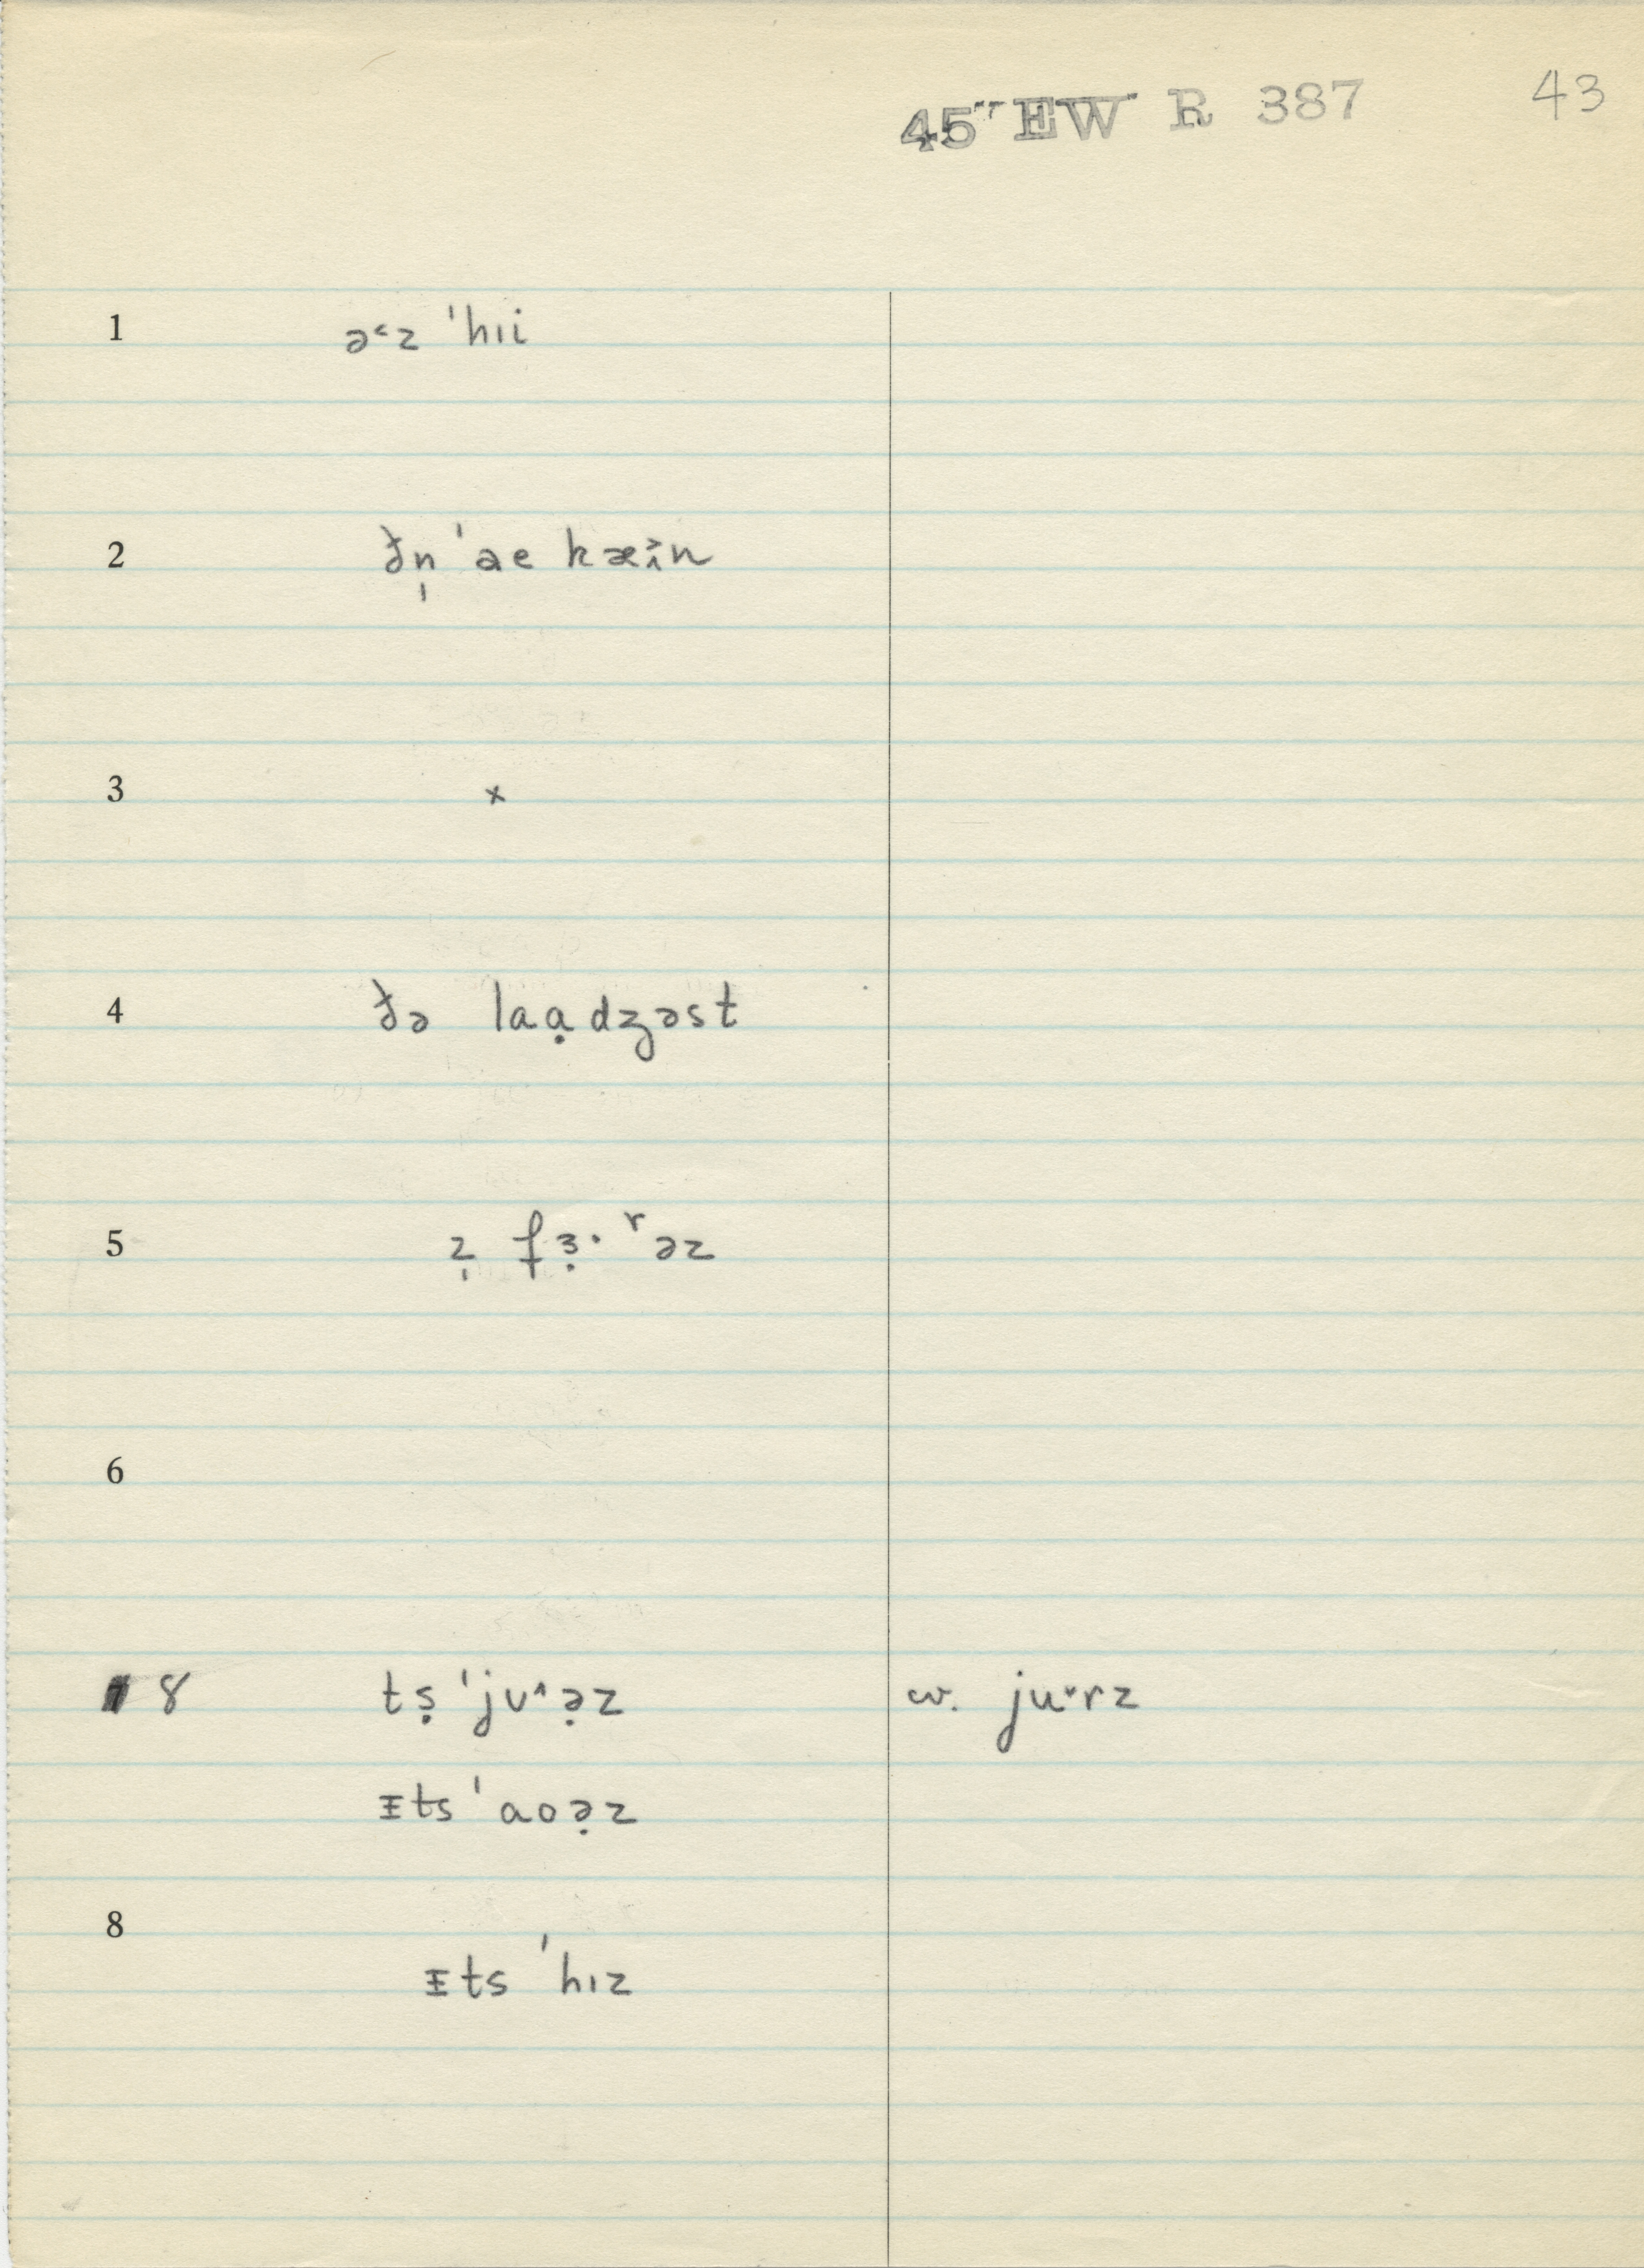 45" EW R 387 43
1 ə˂z ˈhɪi
2 ðn̩ ˈae kæɪ̂n
3 x
4 ðə laạdʒəst
5 z̩ fɜ̣·ʳəz
6
8 tṣ ˈjʊ˄ə̣z w. ju˅rz
ɪts ˈaoə̣z
8
ɪts ˈhɪz